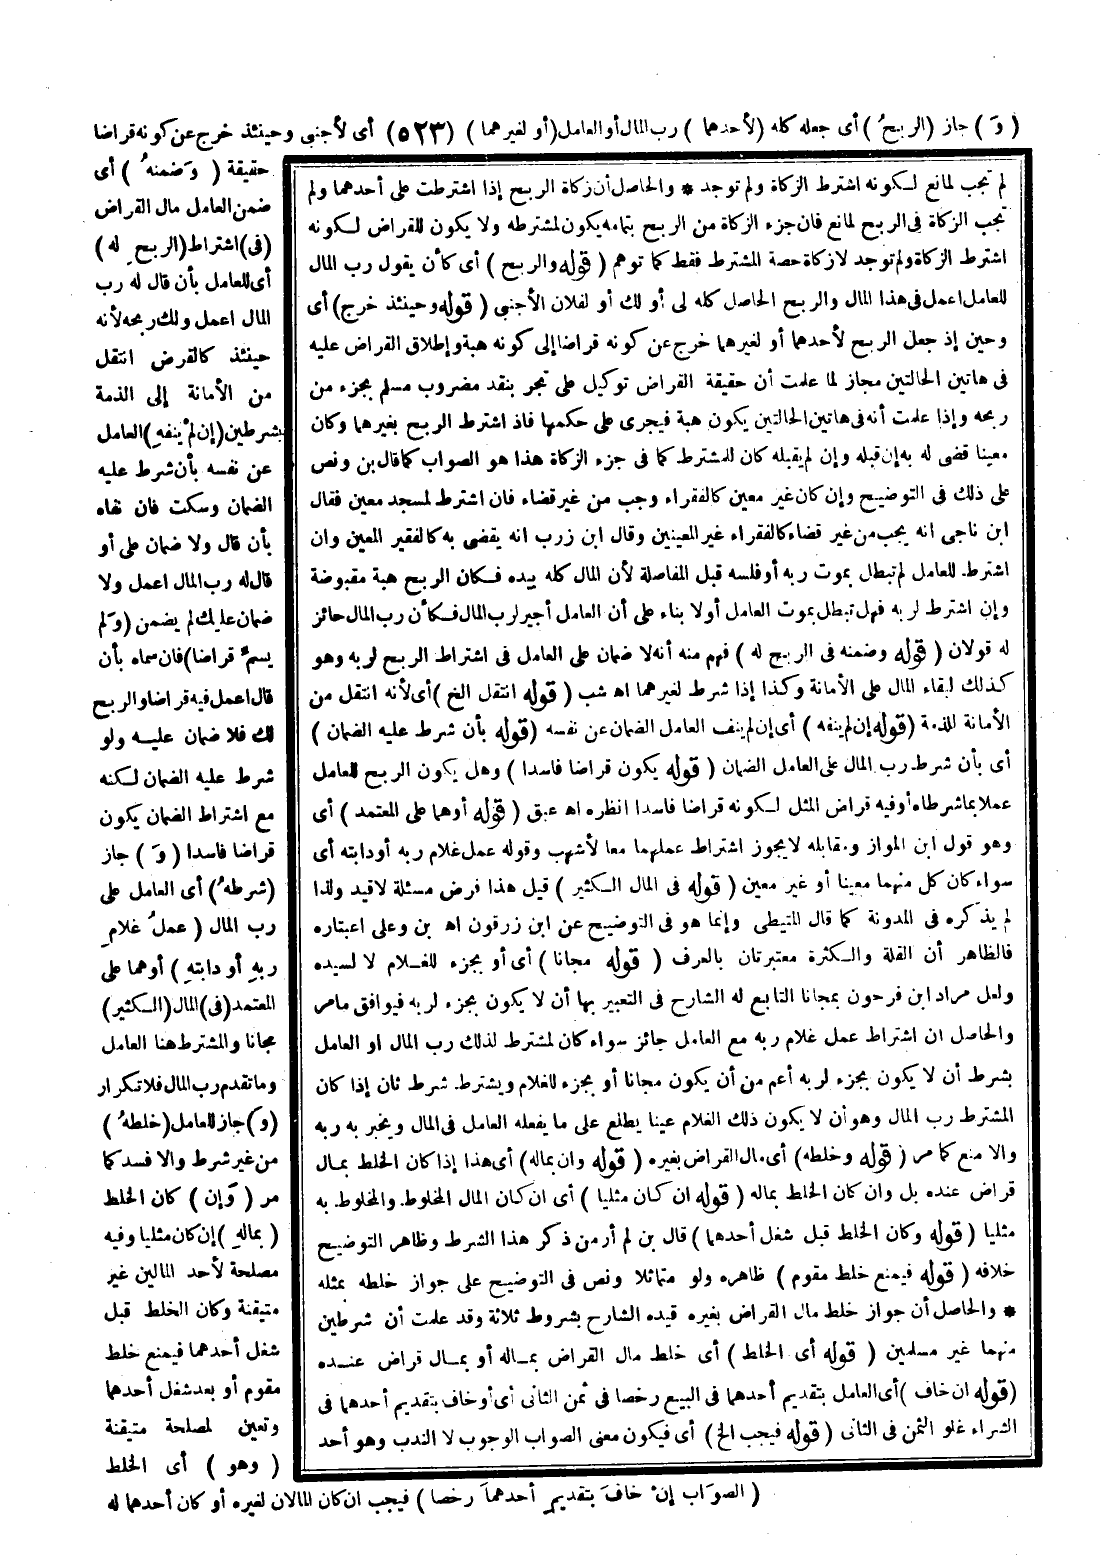 ( وَ ) جاز ( الربحُ ) أى جعله كله ( لأحدهما ) رب المال أو العامل ( أو لغيرهما ) (٥٢٣) أى لأجنبى وحينئذ خرج عن كونه قراضا
حقيقة ( وَضمنهُ ) أى
ضمن العامل مال القراض
(فى) اشتراط (الربحِ له)
أى للعامل بأن قال له رب
المال اعمل ولك ربحه لأنه
حينئذ كالقرض انتقل
من الأمانة إلى الذمة
بشرطين (إن لم ينفهِ) العامل
عن نفسه بأن شرط عليه
الضمان وسكت فان نفاه
بأن قال ولا ضمان على أو
قال له رب المال اعمل ولا
ضمان عليك لم يضمن (وَلم
يسمِّ قراضا) فان سماه بأن
قال اعمل فيه قراضا والربح
لك فلا ضمان عليه ولو
شرط عليه الضمان لكنه
مع اشتراط الضمان يكون
قراضا فاسدا ( وَ ) جاز
(شرطهُ) أى العامل على
رب المال ( عملُ غلامِ
ربهِ أو دابتهِ ) أوهما على
المعتمد (فى) المال (الكثير)
مجانا والمشترط هنا العامل
وما تقدم رب المال فلا تكرار
(وَ) جاز للعامل (خلطهُ )
من غير شرط والا فسد كما
مر ( وَإن ) كان الخلط
( بمالهِ ) إن كان مثليا وفيه
مصلحة لأحد المالين غير
متيقنة وكان الخلط قبل
شغل أحدهما فيمنع خلط
مقوم أو بعد شغل أحدهما
وتعين لمصلحة متيقنة
( وهو ) أى الخلط
( الصوَاب إنْ خافَ بتقديمِ أحدهمَا رخصا ) فيجب ان كان المالان لغيره أو كان أحدهما له
لم تجب لمانع لكونه اشترط الزكاة ولم توجد * والحاصل أن زكاة الربح إذا اشترطت على أحدهما ولم
تجب الزكاة فى الربح لمانع فان جزء الزكاة من الربح بتمامه يكون لمشترطه ولا يكون للقراض لكونه
اشترط الزكاة ولم توجد لا زكاة حصة المشترط فقط كما توهم ( قوله والربح ) أى كأن يقول رب المال
للعامل اعمل فى هذا المال والربح الحاصل كله لى أو لك أو لفلان الأجنبى ( قوله وحينئذ خرج ) أى
وحين إذ جعل الربح لأحدهما أو لغيرهما خرج عن كونه قراضا إلى كونه هبة وإطلاق القراض عليه
فى هاتين الحالتين مجاز لما علمت أن حقيقة القراض توكيل على تجر بنقد مضروب مسلم بجزء من
ربحه وإذا علمت أنه فى هاتين الحالتين يكون هبة فيجرى على حكمها فاذ اشترط الربح بغيرهما وكان
معينا قضى له به إن قبله وإن لم يقبله كان للمشترط كما فى جزء الزكاة هذا هو الصواب كما قال بن ونص
على ذلك فى التوضيح وإن كان غير معين كالفقراء وجب من غير قضاء فان اشترط لمسجد معين فقال
ابن ناجى انه يجب من غير قضاء كالفقراء غير المعينين وقال ابن زرب انه يقضى به كالفقير المعين وان
اشترط للعامل لم تبطل بموت ربه أو فلسه قبل المفاصلة لأن المال كله بيده فكان الربح هبة مقبوضة
وإن اشترط لربه فهل تبطل بموت العامل أولا بناء على أن العامل أجير لرب المال فكأن رب المال حائز
له قولان ( قوله وضمنه فى الربح له ) فهم منه أنه لا ضمان على العامل فى اشتراط الربح لربه وهو
كذلك لبقاء المال على الأمانة وكذا إذا شرط لغيرهما اه شب ( قوله انتقل الخ ) أى لأنه انتقل من
الأمانة للذمة ( قوله إن لم ينفه ) أى إن لم ينف العامل الضمان عن نفسه ( قوله بأن شرط عليه الضمان )
أى بأن شرط رب المال على العامل الضمان ( قوله يكون قراضا فاسدا ) وهل يكون الربح للعامل
عملا بما شرطاه أو فيه قراض المثل لكونه قراضا فاسدا انظره اه عبق ( قوله أوهما على المعتمد ) أى
وهو قول ابن المواز ومقابله لا يجوز اشتراط عملهما معا لأشهب وقوله عمل غلام ربه أو دابته أى
سواء كان كل منهما معينا أو غير معين ( قوله فى المال الكثير ) قيل هذا فرض مسئلة لا قيد ولذا
لم يذكره فى المدونة كما قال المتيطى وإنما هو فى التوضيح عن ابن زرقون اه بن وعلى اعتباره
فالظاهر أن القلة والكثرة معتبرتان بالعرف ( قوله مجانا ) أى أو بجزء للغلام لا لسيده
ولعل مراد ابن فرحون بمجانا التابع له الشارح فى التعبير بها أن لا يكون بجزء لربه فيوافق ما مر
والحاصل ان اشتراط عمل غلام ربه مع العامل جائز سواء كان لمشترط لذلك رب المال او العامل
بشرط أن لا يكون بجزء لربه أعم من أن يكون مجانا أو بجزء للغلام ويشترط شرط ثان إذا كان
المشترط رب المال وهو أن لا يكون ذلك الغلام عينا يطلع على ما يفعله العامل فى المال ويخبر به ربه
والا منع كما مر ( قوله وخلطه ) أى مال القراض بغيره ( قوله وان بماله ) أى هذا إذا كان الخلط بمال
قراض عنده بل وان كان الخلط بماله ( قوله ان كان مثليا ) أى ان كان المال المخلوط والمخلوط به
مثليا ( قوله وكان الخلط قبل شغل أحدهما ) قال بن لم أر من ذكر هذا الشرط وظاهر التوضيح
خلافه ( قوله فيمنع خلط مقوم ) ظاهره ولو متماثلا ونص فى التوضيح على جواز خلطه بمثله
* والحاصل أن جواز خلط مال القراض بغيره قيده الشارح بشروط ثلاثة وقد علمت أن شرطين
منهما غير مسلمين ( قوله أى الخلط ) أى خلط مال القراض بماله أو بمال قراض عنده
( قوله ان خاف ) أى العامل بتقديم أحدهما فى البيع رخصا فى ثمن الثانى أى أو خاف بتقديم أحدهما فى
الشراء غلو الثمن فى الثانى ( قوله فيجب الخ ) أى فيكون معنى الصواب الوجوب لا الندب وهو أحد